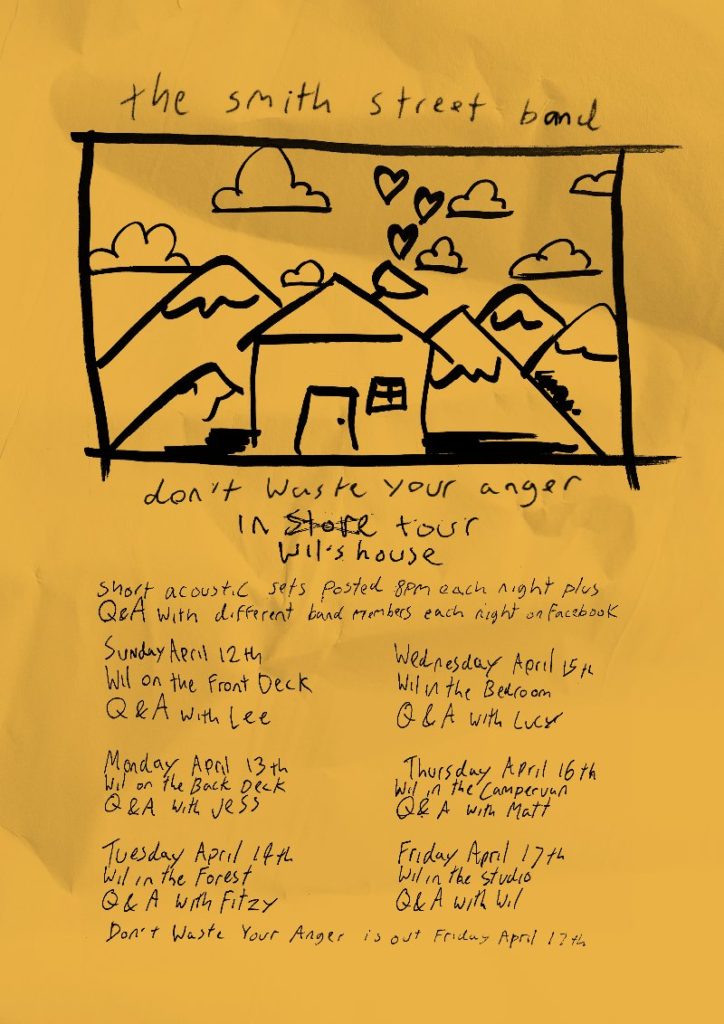 the smith street band
don't waste your anger
in store tour
Wil's house
short acoustic sets posted 8pm each night plus
Q&A with different band members each night on Facebook
Sunday April 12th
Wil on the Front Deck
Q & A with Lee
Monday April 13th
Wil on the Back Deck
Q & A with Jess
Tuesday April 14th
Wil in the Forest
Q & A with Fitzy
Wednesday April 15th
Wil in the Bedroom
Q & A with Lucy
Thursday April 16th
Wil in the Campervan
Q & A with Matt
Friday April 17th
Wil in the Studio
Q & A with Wil
Don't Waste Your Anger is out Friday April 17th